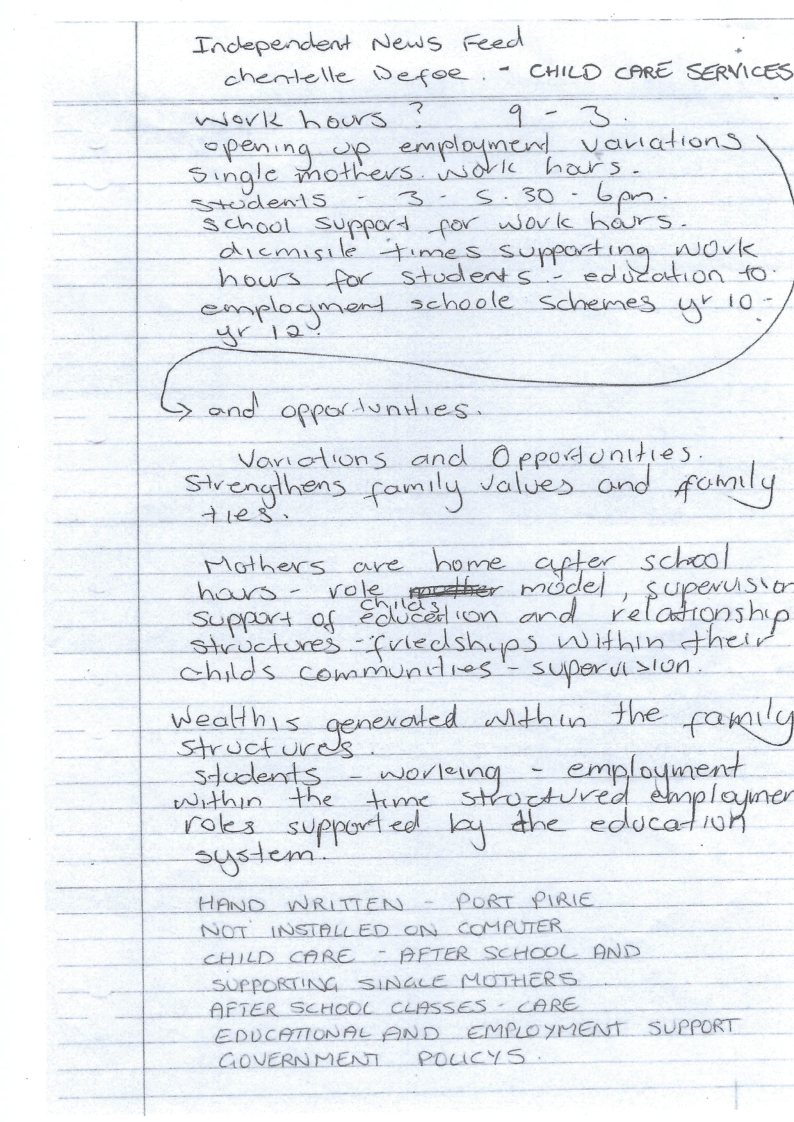 Independent News Feed
chentelle Defoe. - CHILD CARE SERVICES
work hours? 9 - 3.
opening up employment variations
single mothers work hours.
students - 3 - 5.30 - 6pm.
school support for work hours.
dicmisile times supporting work
hours for students - education to
employment schoole schemes yr 10 -
yr 12.
→ and opportunities.
Variations and Opportunities.
Strengthens family values and family
ties.
Mothers are home after school
hours - role model, supervision
childs
support of education and relationship
structures - friedships within their
childs communities - supervision.
Wealth is generated within the family
structures.
students - working - employment
within the time structured employmen
roles supported by the education
system.
HAND WRITTEN - PORT PIRIE
NOT INSTALLED ON COMPUTER
CHILD CARE - AFTER SCHOOL AND
SUPPORTING SINGLE MOTHERS
AFTER SCHOOL CLASSES - CARE
EDUCATIONAL AND EMPLOYMENT SUPPORT
GOVERNMENT POLICYS.